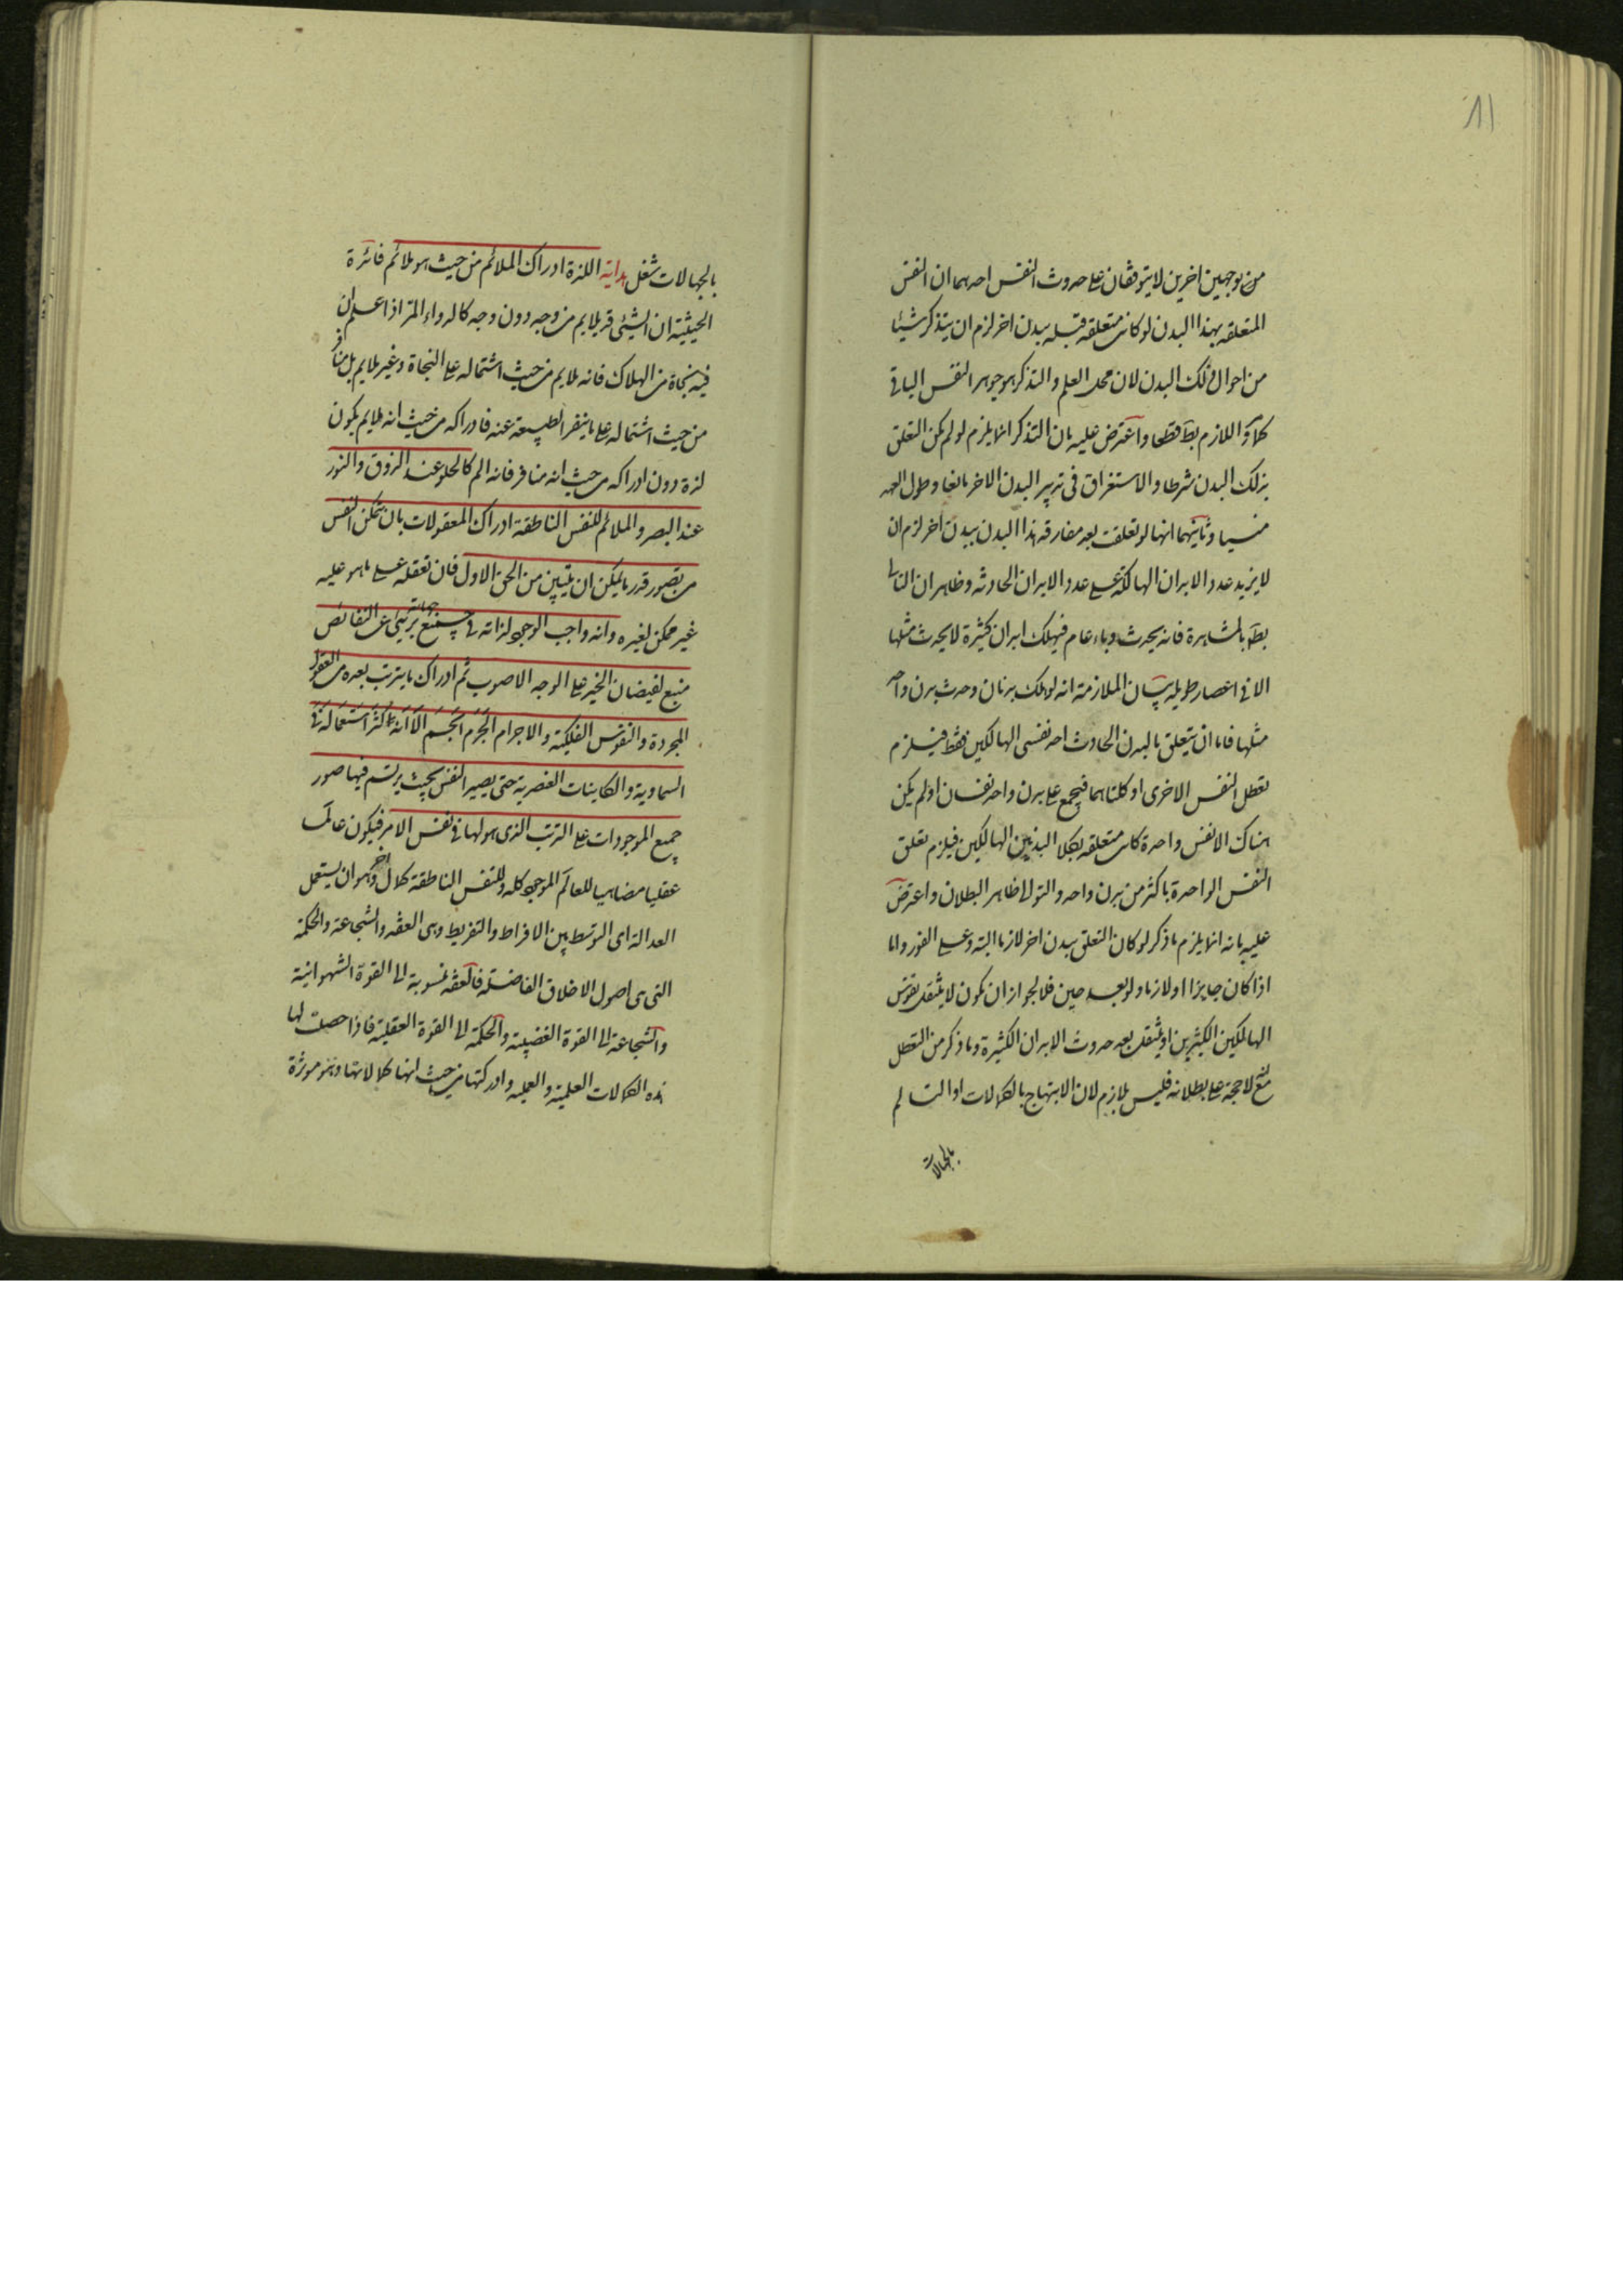 ١١
من بوجهين اخرين لا يتوقفان على حدوث النفس احدهما ان النفس
المتعلقه بهذا البدن لو كانت متعلقه قبله ببدن اخر لزم ان يتذكر شيئا
من احوال ذلك البدن لان محل العلم والتذكر هو جوهر النفس الباقى
كما واللازم بط قطعا واعترض عليه بان التذكر انما يلزم لو لم يكن التعلق
بذلك البدن شرطا والاستغراق فى تدبير البدن الاخر مانعا وطول العهد
منسيا وثانيهما انها لو تعلقت بعد مفارقة هذا البدن ببدن اخر لزم ان
لا يزيد عدد الابدان الهالكة على عدد الابدان الحادثه وظاهر ان التالى
بط بالمشاهرة فانه يحدث وباء عام فيهلك ابدان كثيرة لا يحدث مثلها
الا فى اعصار طويله بيان الملازمة انه لو هلك بدنان وحدث بدن واحد
مثلها فاما ان يتعلق بالبدن الحادث احد نفسى الهالكين فقط فيلزم
تعطل النفس الاخرى او كلتاهما فيجمع على بدن واحد نفسان او لم يكن
هناك الا نفس واحدة كانت متعلقه بكلا البدنين الهالكين فيلزم تعلق
النفس الواحدة باكثر من بدن واحد والتوالى ظاهر البطلان واعترض
عليه بانه انما يلزم ما ذكر لو كان التعلق ببدن اخر لازما البتة وعلى الفور واما
اذا كان جايزا او لازما ولو بعد حين فلا لجواز ان يكون لا ينتقل نفوس
الهالكين الكثيرين او ينتقل بعد حدوث الابدان الكثيرة وما ذكر من التعطل
مع انه لا حجة على بطلانه فليس بلازم لان الابتهاج بالكمالات او التالم
بالجهالات
بالجهالات شغل هداية اللذة ادراك الملائم من حيث هو ملائم فائدة
الحيثية ان الشئ قد يلايم من وجه دون وجه كالدواء المر اذا علم ان
فيه نجاة من الهلاك فانه ملايم من حيث اشتماله على النجاة وغير ملايم بل منافر
من حيث اشتماله على ما ينفر الطبيعة عنه فادراكه من حيث انه ملايم يكون
لذة دون ادراكه من حيث انه منافر فانه الم كالحلو عند الذوق والنور
عند البصر والملائم للنفس الناطقة ادراك المعقولات بان يتمكن النفس
من تصور قدر ما يمكن ان يتبين من الحق الاول فان تعقله على ما هو عليه
غير ممكن لغيره وانه واجب الوجود لذاته فى جميع جهاته برئ عن النقائص
منبع لفيضان الخير على الوجه الاصوب ثم ادراك ما يترتب بعده من العقول
المجردة والنفوس الفلكية والاجرام الجرم الجسم الا انه اكثر استعماله فى
السماوية والكاينات العنصرية حتى يصير النفس بحيث يرتسم فيها صور
جميع الموجودات على الترتب الذى هو لها فى نفس الامر فيكون عالما
عقليا مضاهيا للعالم الموجود كله وللنفس الناطقة كمال اخر وهو ان يستعمل
العدالة اى التوسط بين الافراط والتفريط وهى العفه والشجاعة والحكمة
التى هى اصول الاخلاق الفاضله فالعفه منسوبة الى القوة الشهوانية
والشجاعة الى القوة الغضبية والحكمة الى القوة العقلية فاذا حصلت لها
هذه الكمالات العلمية والعملية وادركتها من حيث انها كمالاتها وهى مؤثرة